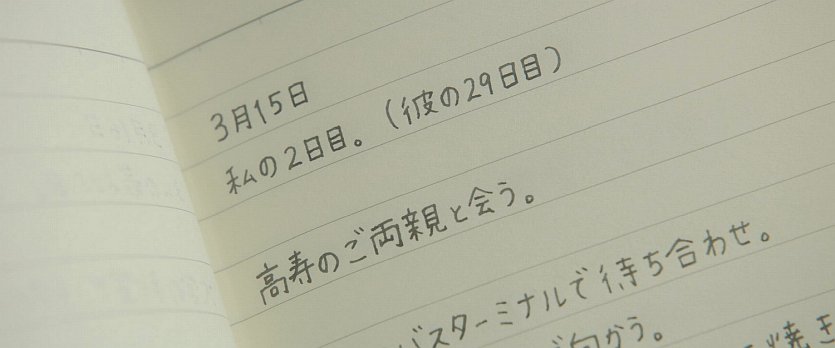 3月15日
私の2日目。(彼の29日目)
高寿のご両親と会う。
バスターミナルで待ち合わせ。
向かう。
焼き